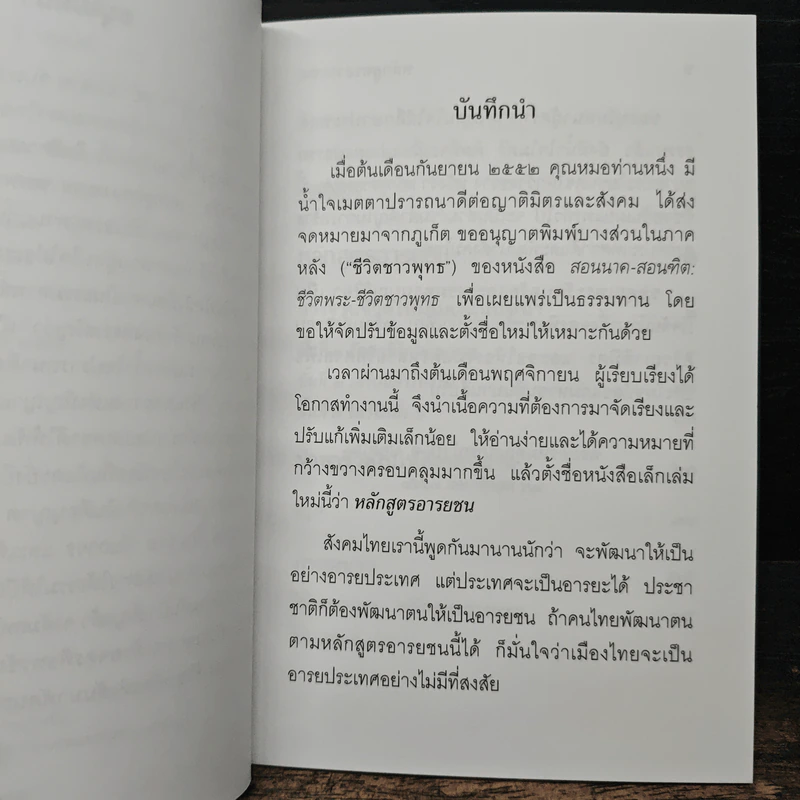 บันทึกนำ
เมื่อต้นเดือนกันยายน ๒๕๕๒ คุณหมอท่านหนึ่ง มี
น้ำใจเมตตาปรารถนาดีต่อญาติมิตรและสังคม ได้ส่ง
จดหมายมาจากภูเก็ต ขออนุญาตพิมพ์บางส่วนในภาค
หลัง (“ชีวิตชาวพุทธ”) ของหนังสือ สอนนาค-สอนฑิต:
ชีวิตพระ-ชีวิตชาวพุทธ เพื่อเผยแพร่เป็นธรรมทาน โดย
ขอให้จัดปรับข้อมูลและตั้งชื่อใหม่ให้เหมาะกันด้วย
เวลาผ่านมาถึงต้นเดือนพฤศจิกายน ผู้เรียบเรียงได้
โอกาสทำงานนี้ จึงนำเนื้อความที่ต้องการมาจัดเรียงและ
ปรับแก้เพิ่มเติมเล็กน้อย ให้อ่านง่ายและได้ความหมายที่
กว้างขวางครอบคลุมมากขึ้น แล้วตั้งชื่อหนังสือเล็กเล่ม
ใหม่นี้ว่า หลักสูตรอารยชน
สังคมไทยเรานี้พูดกันมานานนักว่า จะพัฒนาให้เป็น
อย่างอารยประเทศ แต่ประเทศจะเป็นอารยะได้ ประชา
ชาติก็ต้องพัฒนาตนให้เป็นอารยชน ถ้าคนไทยพัฒนาตน
ตามหลักสูตรอารยชนนี้ได้ ก็มั่นใจว่าเมืองไทยจะเป็น
อารยประเทศอย่างไม่มีที่สงสัย